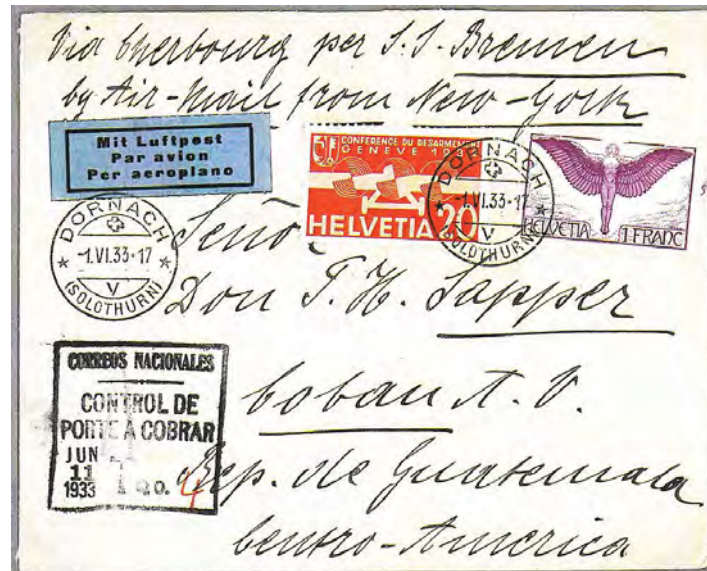 Via Cherbourg per S.S. Bremen
by Air-Mail from New-York
Mit Luftpost
Par avion
Per aeroplano
CONFERENCE DU DESARMEMENT
GENEVE
HELVETIA 20
HELVETIA 1 FRANC
DORNACH
-1.VI.33-17
V
(SOLOTHURN)
DORNACH
-1.VI.33-17
V
(SOLOTHURN)
Señor
Don T. H. Sapper
Coban A. V.
Rep. de Guatemala
Centro-America
CORREOS NACIONALES
CONTROL DE
PORTE A COBRAR
JUN
11
1933